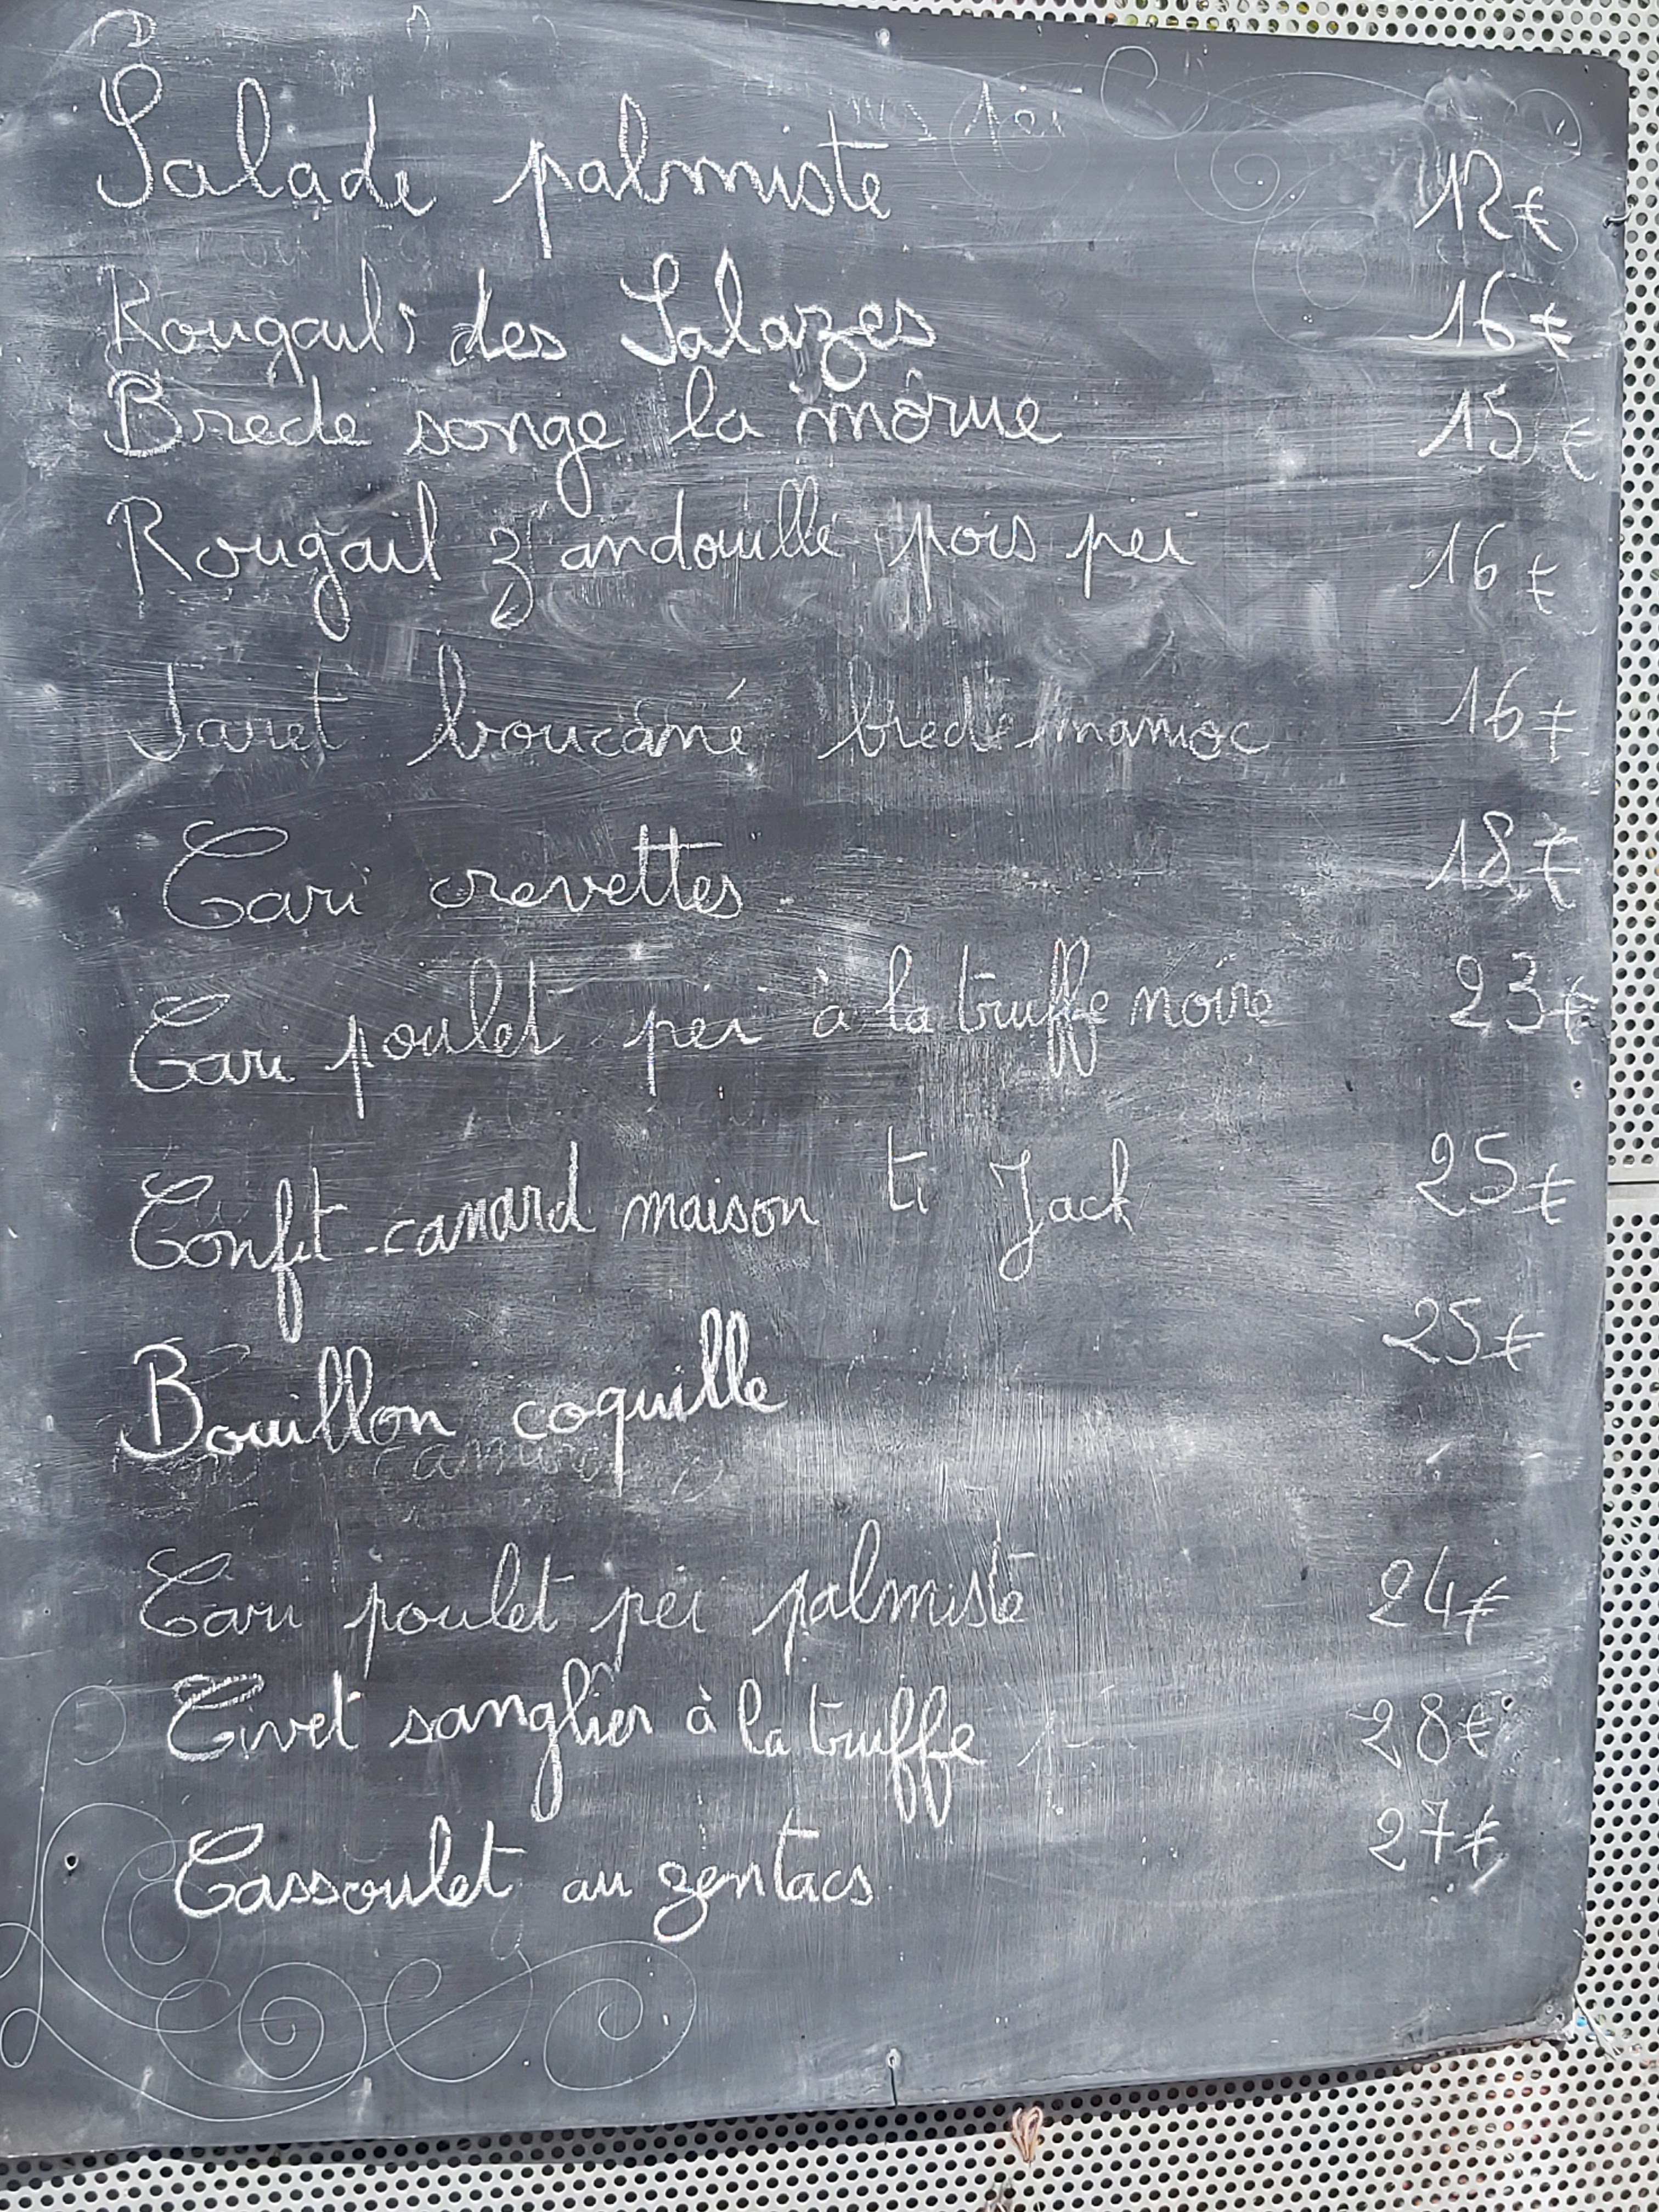 Salade palmiste 12€
Rougail des Salazes 16€
Brede songe la morue 15€
Rougail z'andouille pois pei 16€
Jaret boucané brede manioc 16€
Cari crevettes 18€
Cari poulet pei à la truffe noire 23€
Confit canard maison ti Jack 25€
Bouillon coquille 25€
Cari poulet pei palmiste 24€
Civet sanglier à la truffe 28€
Cassoulet au zentacs 27€